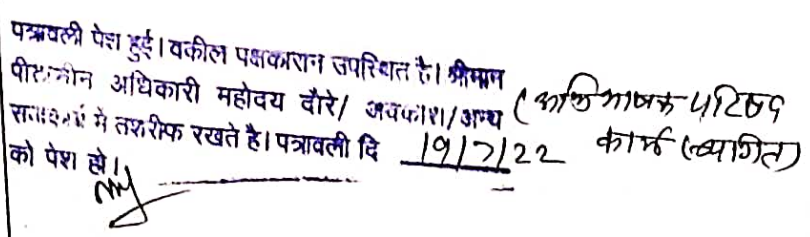 पत्रावली पेश हुई। वकील पक्षकारान उपस्थित है। श्रीमान
पीठासीन अधिकारी महोदय दौरे/ अवकाश/अन्य (अभिभाषक परिषद
में तशरीफ रखते है। पत्रावली दि 19/7/22 कार्य स्थगित)
को पेश हो।